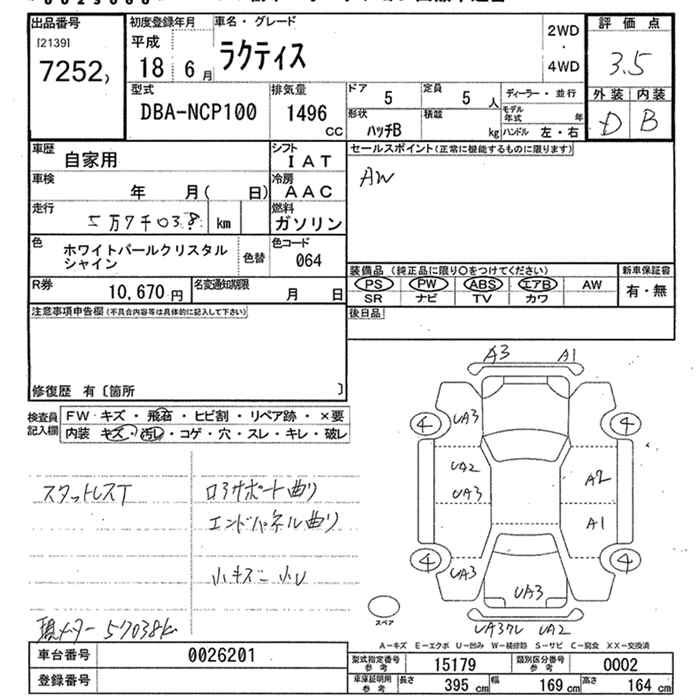 出品番号
[2139]
7252
初度登録年月
平成
18 6月
車名・グレード
ラクティス
2WD
・
4WD
評価点
3.5
外装 内装
D B
型式
DBA-NCP100
排気量
1496
CC
ドア
5
定員
5 人
形状
ハッチB
積載
kg
ディーラー・並行
モデル年式 年
ハンドル 左・右
車歴
自家用
シフト
IAT
車検
年 月( 日)
冷房
AAC
走行
5万7千038 km
燃料
ガソリン
色
ホワイトパールクリスタル
シャイン
色替
色コード
064
R券
10,670 円
名変通知期限
月 日
セールスポイント(正常に機能するものに限ります)
AW
装備品 (純正品に限り○をつけてください)
PS PW ABS エアB AW
SR ナビ TV カワ
新車保証書
有・無
後日品
注意事項申告欄(不具合内容等は具体的に記入して下さい)
修復歴 有〔箇所 〕
検査員
記入欄
FW・キズ・飛石・ヒビ割・リペア跡・×要
内装 キズ・汚レ・コゲ・穴・スレ・キレ・破レ
スタットレスT
コアサポート曲り
エンドパネル曲り
小キズ 小U
メーター 57038k
A3 A1
4 UA3 4
UA2
UA3
A2
A1
4 UA3 4
UA3
スペア
UA2
A－キズ E－エクボ U－凹み W－補修跡 S－サビ C－腐食 XX－交換済
車台番号
0026201
登録番号
型式指定番号
参考
15179
類別区分番号
参考
0002
車庫証明用
参考
長さ 395 cm
幅 169 cm
高さ 164 cm